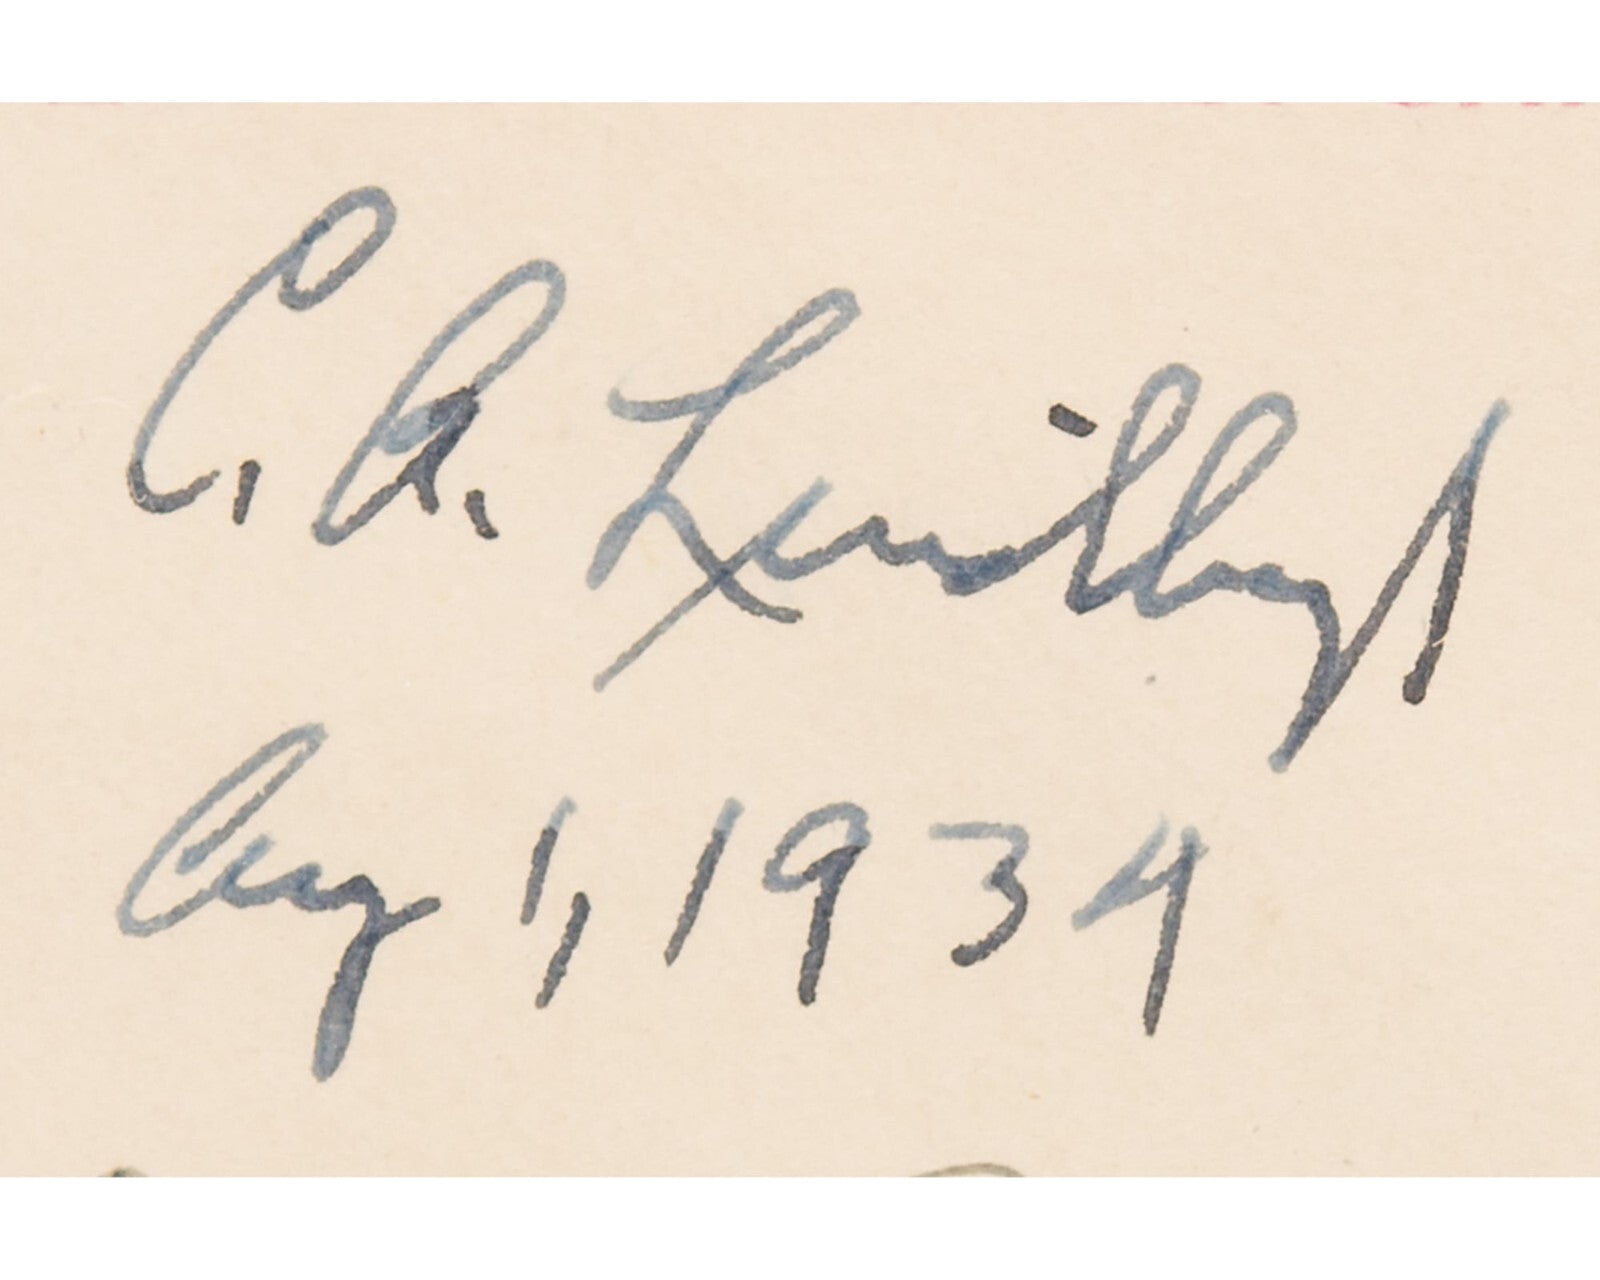 C. A. Lindbergh
Aug 1, 1934